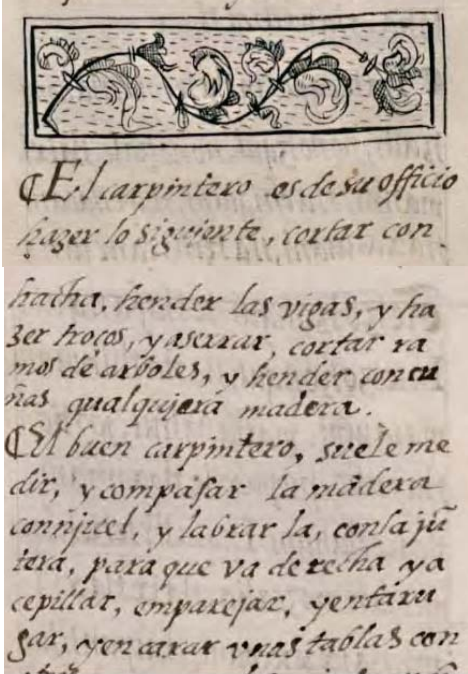 ¶ El carpintero es de su officio
hazer lo siguiente, cortar con
hacha, hender las vigas, y ha
zer troços, y aserrar, cortar ra
mos de arboles, y hender con cu
ñas qualquiera madera.
¶ El buen carpintero, suele me
dir, y compasar la madera
con njuel, y labrar la, con la jũ
tera, para que va derecha y a
cepillar, emparejar, y entaru
gar, y encarar vnas tablas con